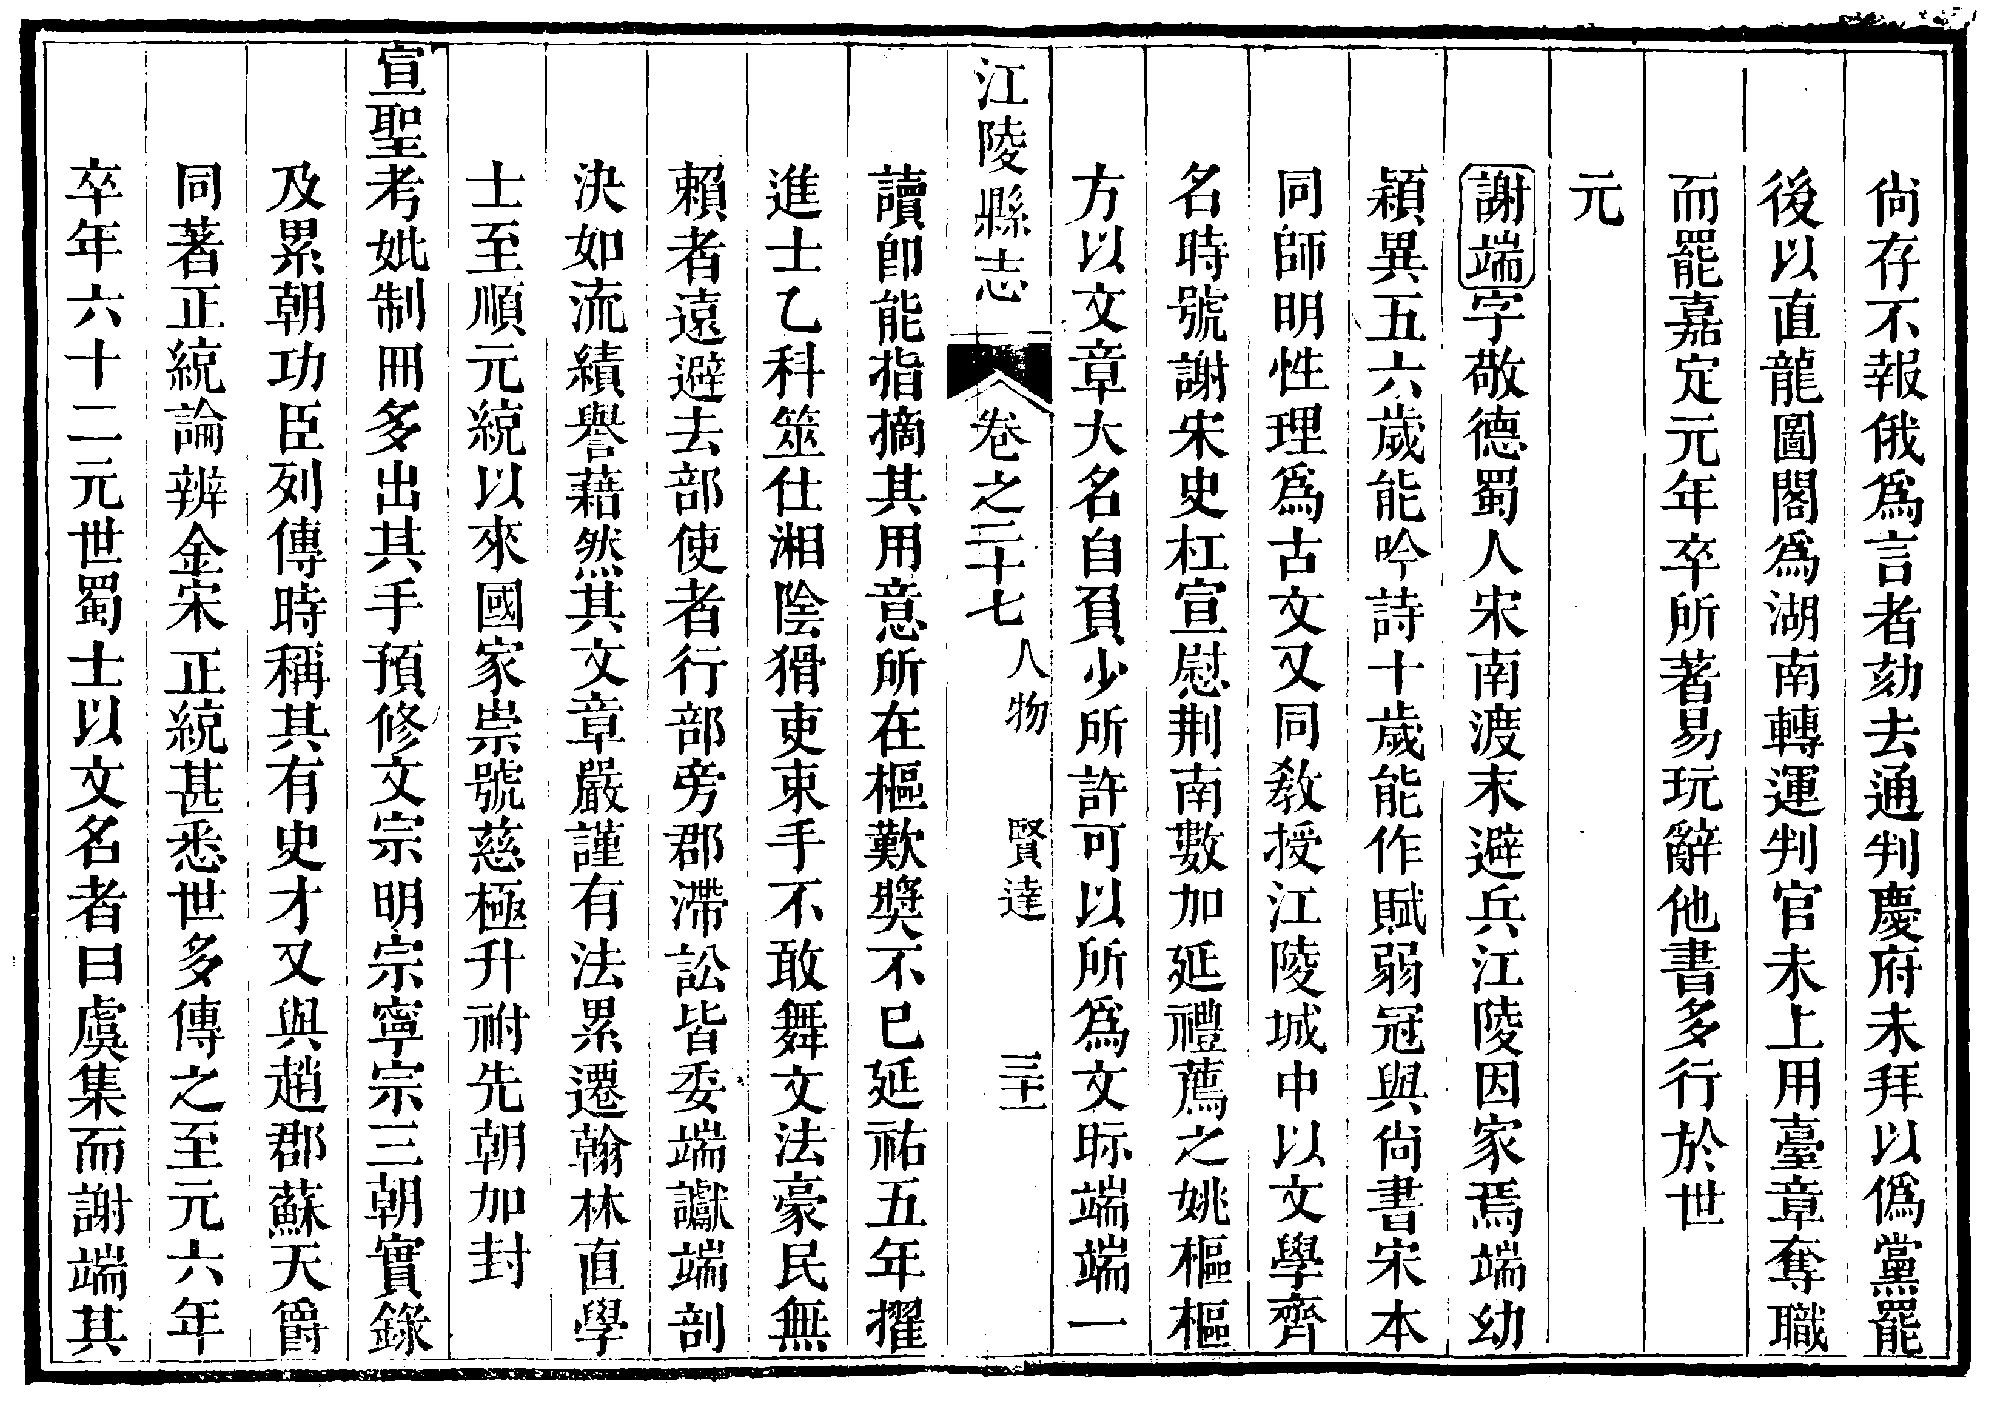 尙存不報俄爲言者劾去通判慶府未拜以僞黨罷
後以直龍圖閣爲湖南轉運判官未上用臺章奪職
而罷嘉定元年卒所著易玩辭他書多行於世
元
謝端字敬德蜀人宋南渡末避兵江陵因家焉端幼
穎異五六歲能吟詩十歲能作賦弱冠與尙書宋本
同師明性理爲古文又同敎授江陵城中以文學齊
名時號謝宋史杠宣慰荆南數加延禮薦之姚樞樞
方以文章大名自負少所許可以所爲文眎端端一
江陵縣志 卷之二十七 人物 賢達 三十一
讀卽能指摘其用意所在樞歎獎不已延祐五年擢
進士乙科筮仕湘陰猾吏束手不敢舞文法豪民無
賴者遠避去部使者行部旁郡滯訟皆委端讞端剖
決如流績譽藉然其文章嚴謹有法累遷翰林直學
士至順元統以來國家崇號慈極升祔先朝加封
宣聖考妣制冊多出其手預修文宗明宗寧宗三朝實錄
及累朝功臣列傳時稱其有史才又與趙郡蘇天爵
同著正統論辨金宋正統甚悉世多傳之至元六年
卒年六十二元世蜀士以文名者曰虞集而謝端其